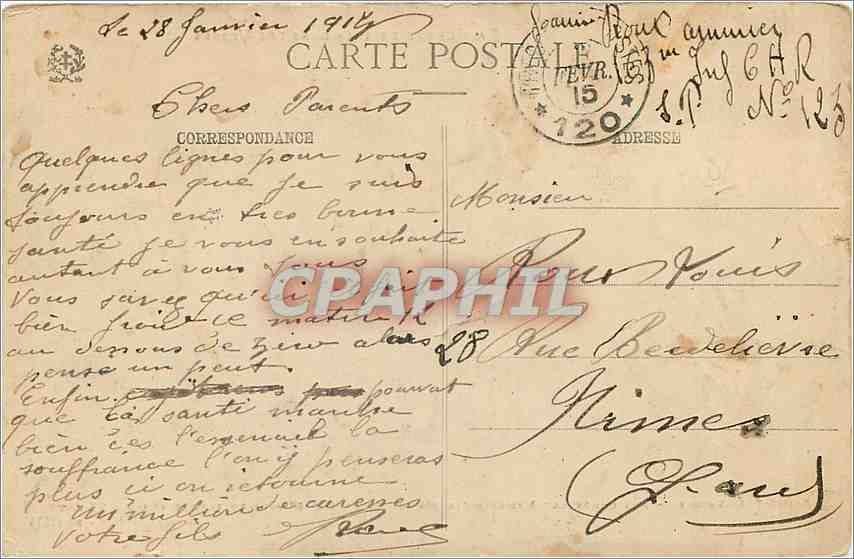 Le 28 Janvier 1917
CARTE POSTALE
FEVR.
15
* 120 *
S.P. No 125
Chers Parents
CORRESPONDANCE
ADRESSE
Quelques lignes pour vous
apprendre que je suis
toujours en tres bonne
santé je vous en souhaite
autant à vous tous
Vous savez qu'ici il fait
bien froid ce matin 12
au dessous de zero alors
pense un peut.
Enfin pourvut
que la santé marche
bien c'es l'essentiel la
souffrance l'on y penseras
plus si on retourne
un million de caresses
Votre fils
Monsieur
Roux Louis
28 Rue
Nimes
(Gard)
CPAPHIL